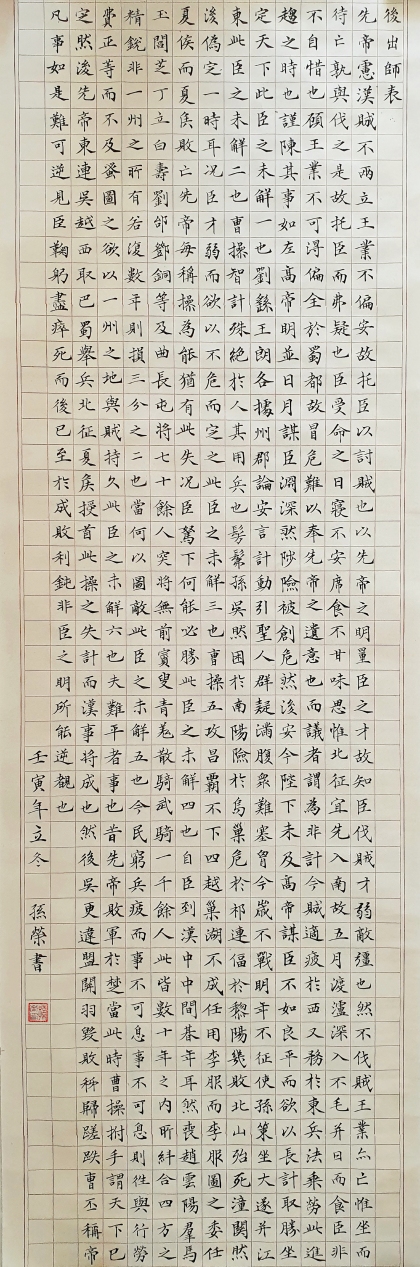 後出師表
先帝慮漢賊不兩立王業不偏安故托臣以討賊也以先帝之明量臣之才故知臣伐賊才弱敵彊也然不伐賊王業亦亡惟坐而
待亡孰與伐之是故托臣而弗疑也臣受命之日寢不安席食不甘味思惟北征宜先入南故五月渡瀘深入不毛并日而食臣非
不自惜也顧王業不可得偏全於蜀都故冒危難以奉先帝之遺意也而議者謂為非計今賊適疲於西又務於東兵法乘勞此進
趨之時也謹陳其事如左高帝明並日月謀臣淵深然涉險被創危然後安今陛下未及高帝謀臣不如良平而欲以長計取勝坐
定天下此臣之未解一也劉繇王朗各據州郡論安言計動引聖人群疑滿腹眾難塞胷今歲不戰明年不征使孫策坐大遂并江
東此臣之未解二也曹操智計殊絕於人其用兵也髣髴孫吳然困於南陽險於烏巢危於祁連偪於黎陽幾敗北山殆死潼關然
後偽定一時耳況臣才弱而欲以不危而定之此臣之未解三也曹操五攻昌霸不下四越巢湖不成任用李服而李服圖之委任
夏侯而夏侯敗亡先帝每稱操為能猶有此失況臣駑下何能必勝此臣之未解四也自臣到漢中中間朞年耳然喪趙雲陽羣馬
玉閻芝丁立白壽劉郃鄧銅等及曲長屯將七十餘人突將無前賨叟青羌散騎武騎一千餘人此皆數十年之內所糾合四方之
精銳非一州之所有若復數年則損三分之二也當何以圖敵此臣之未解五也今民窮兵疲而事不可息事不可息則住與行勞
費正等而不及蚤圖之欲以一州之地與賊持久此臣之未解六也夫難平者事也昔先帝敗軍於楚當此時曹操拊手謂天下已
定然後先帝東連吳越西取巴蜀舉兵北征夏侯授首此操之失計而漢事將成也然後吳更違盟關羽毀敗秭歸蹉跌曹丕稱帝
凡事如是難可逆見臣鞠躬盡瘁死而後已至於成敗利鈍非臣之明所能逆覩也
壬寅年立冬 孫榮書